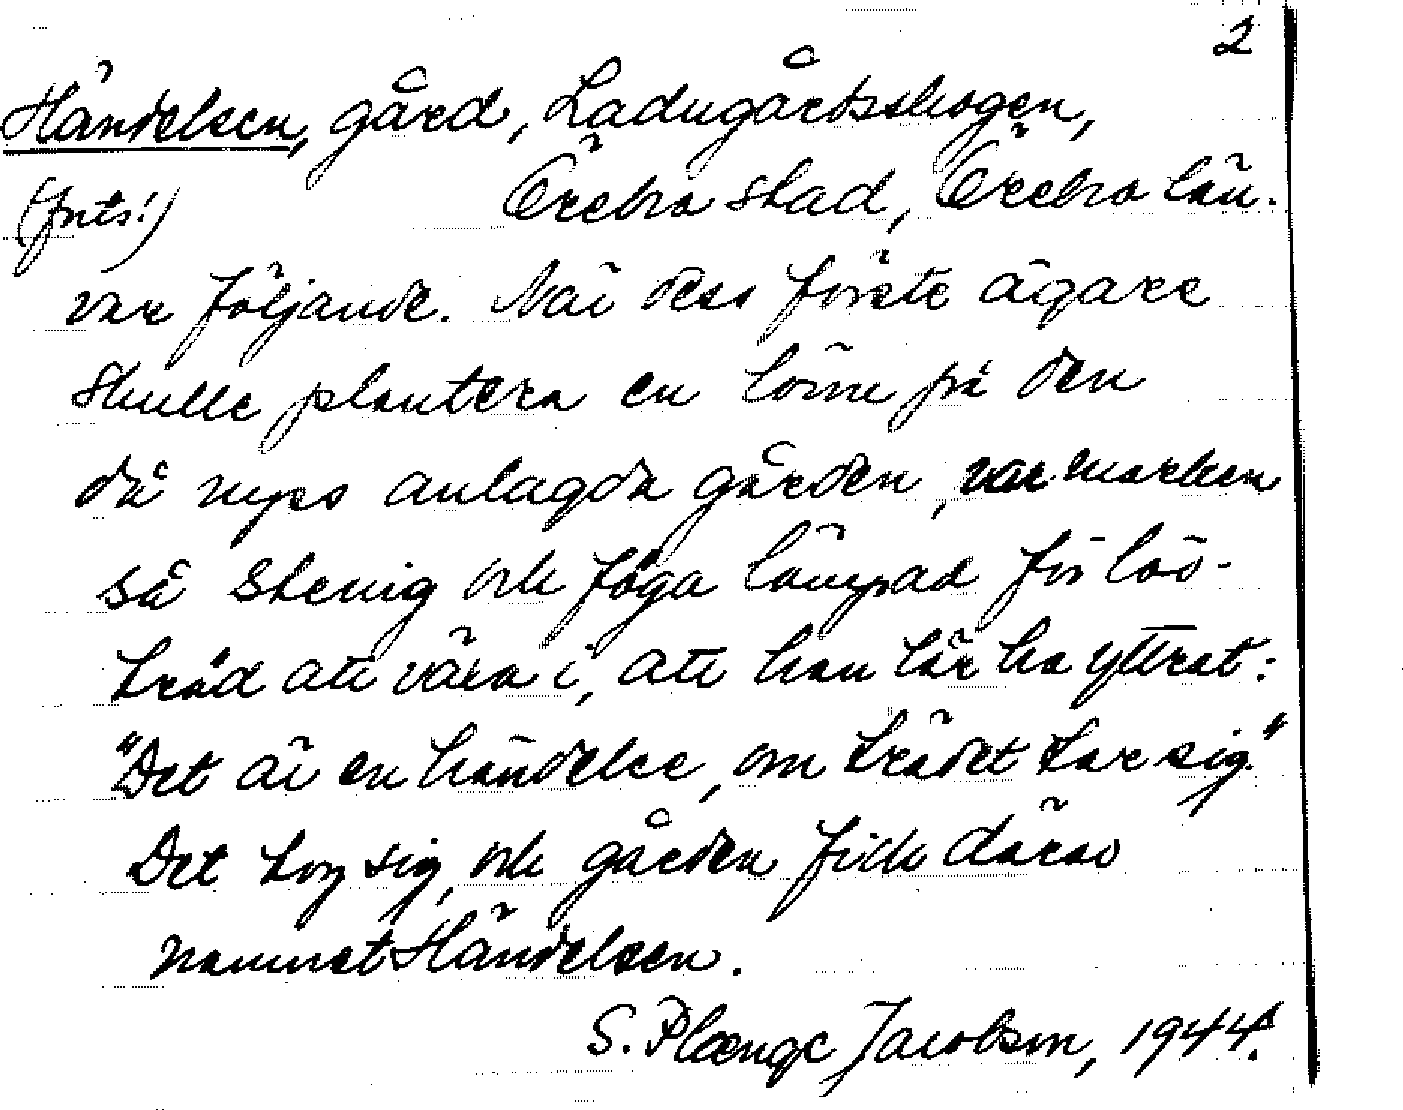 2
Händelsen, gård, Ladugårdsskogen,
(forts!) Örebro stad, Örebro län.
var följande. När dess förste ägare
skulle plantera en lönn på den
då nyss anlagda gården, var marken
så stenig och föga lämpad för löv-
träd att växa i, att han lär ha yttrat:
"Det är en händelse, om trädet tar sig."
Det tog sig, och gården fick därav
namnet Händelsen.
S. Plænge Jacobson, 1944.